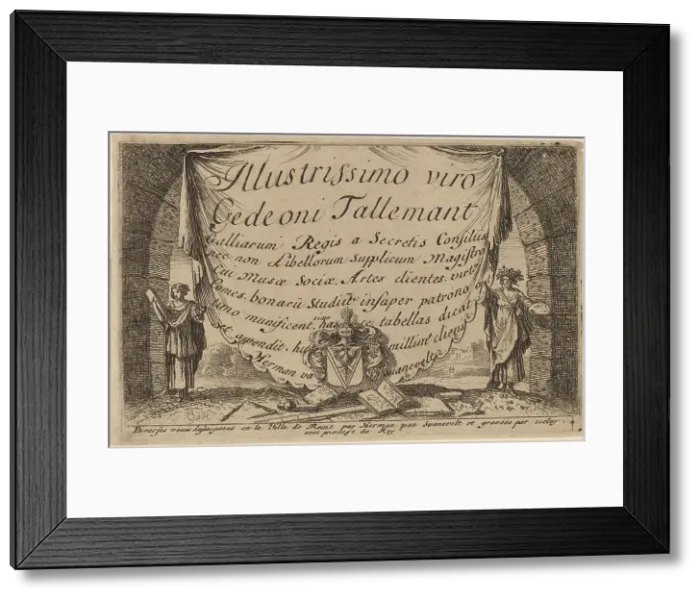 Illustrissimo viro
Gedeoni Tallemant
Galliarum Regis a Secretis Consiliis
nec non Libellorum Supplicum Magistro
Cui Musæ Sociæ, Artes clientes, virtus
Comes, bonarũ Studiũ insuper patrono
timo munificent. has ce tabellas dicat
et appendit. hu millim cliens
Herman va Suanevelt
Diverses veues desseignées en la Ville de Rome par Herman van Suanevelt et gravées par iceluy.
avec privilege du Roy